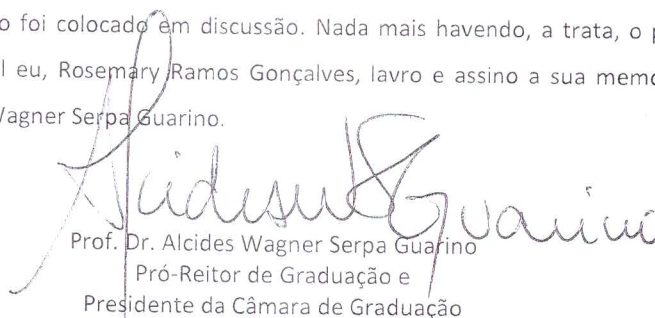 o foi colocado em discussão. Nada mais havendo, a trata, o p
l eu, Rosemary Ramos Gonçalves, lavro e assino a sua memo
Wagner Serpa Guarino.
Alcides W S Guarino
Prof. Dr. Alcides Wagner Serpa Guarino
Pró-Reitor de Graduação e
Presidente da Câmara de Graduação